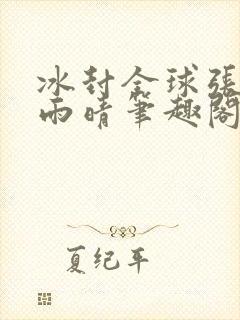 冰封全球張
雨晴筆趣閣
夏纪年